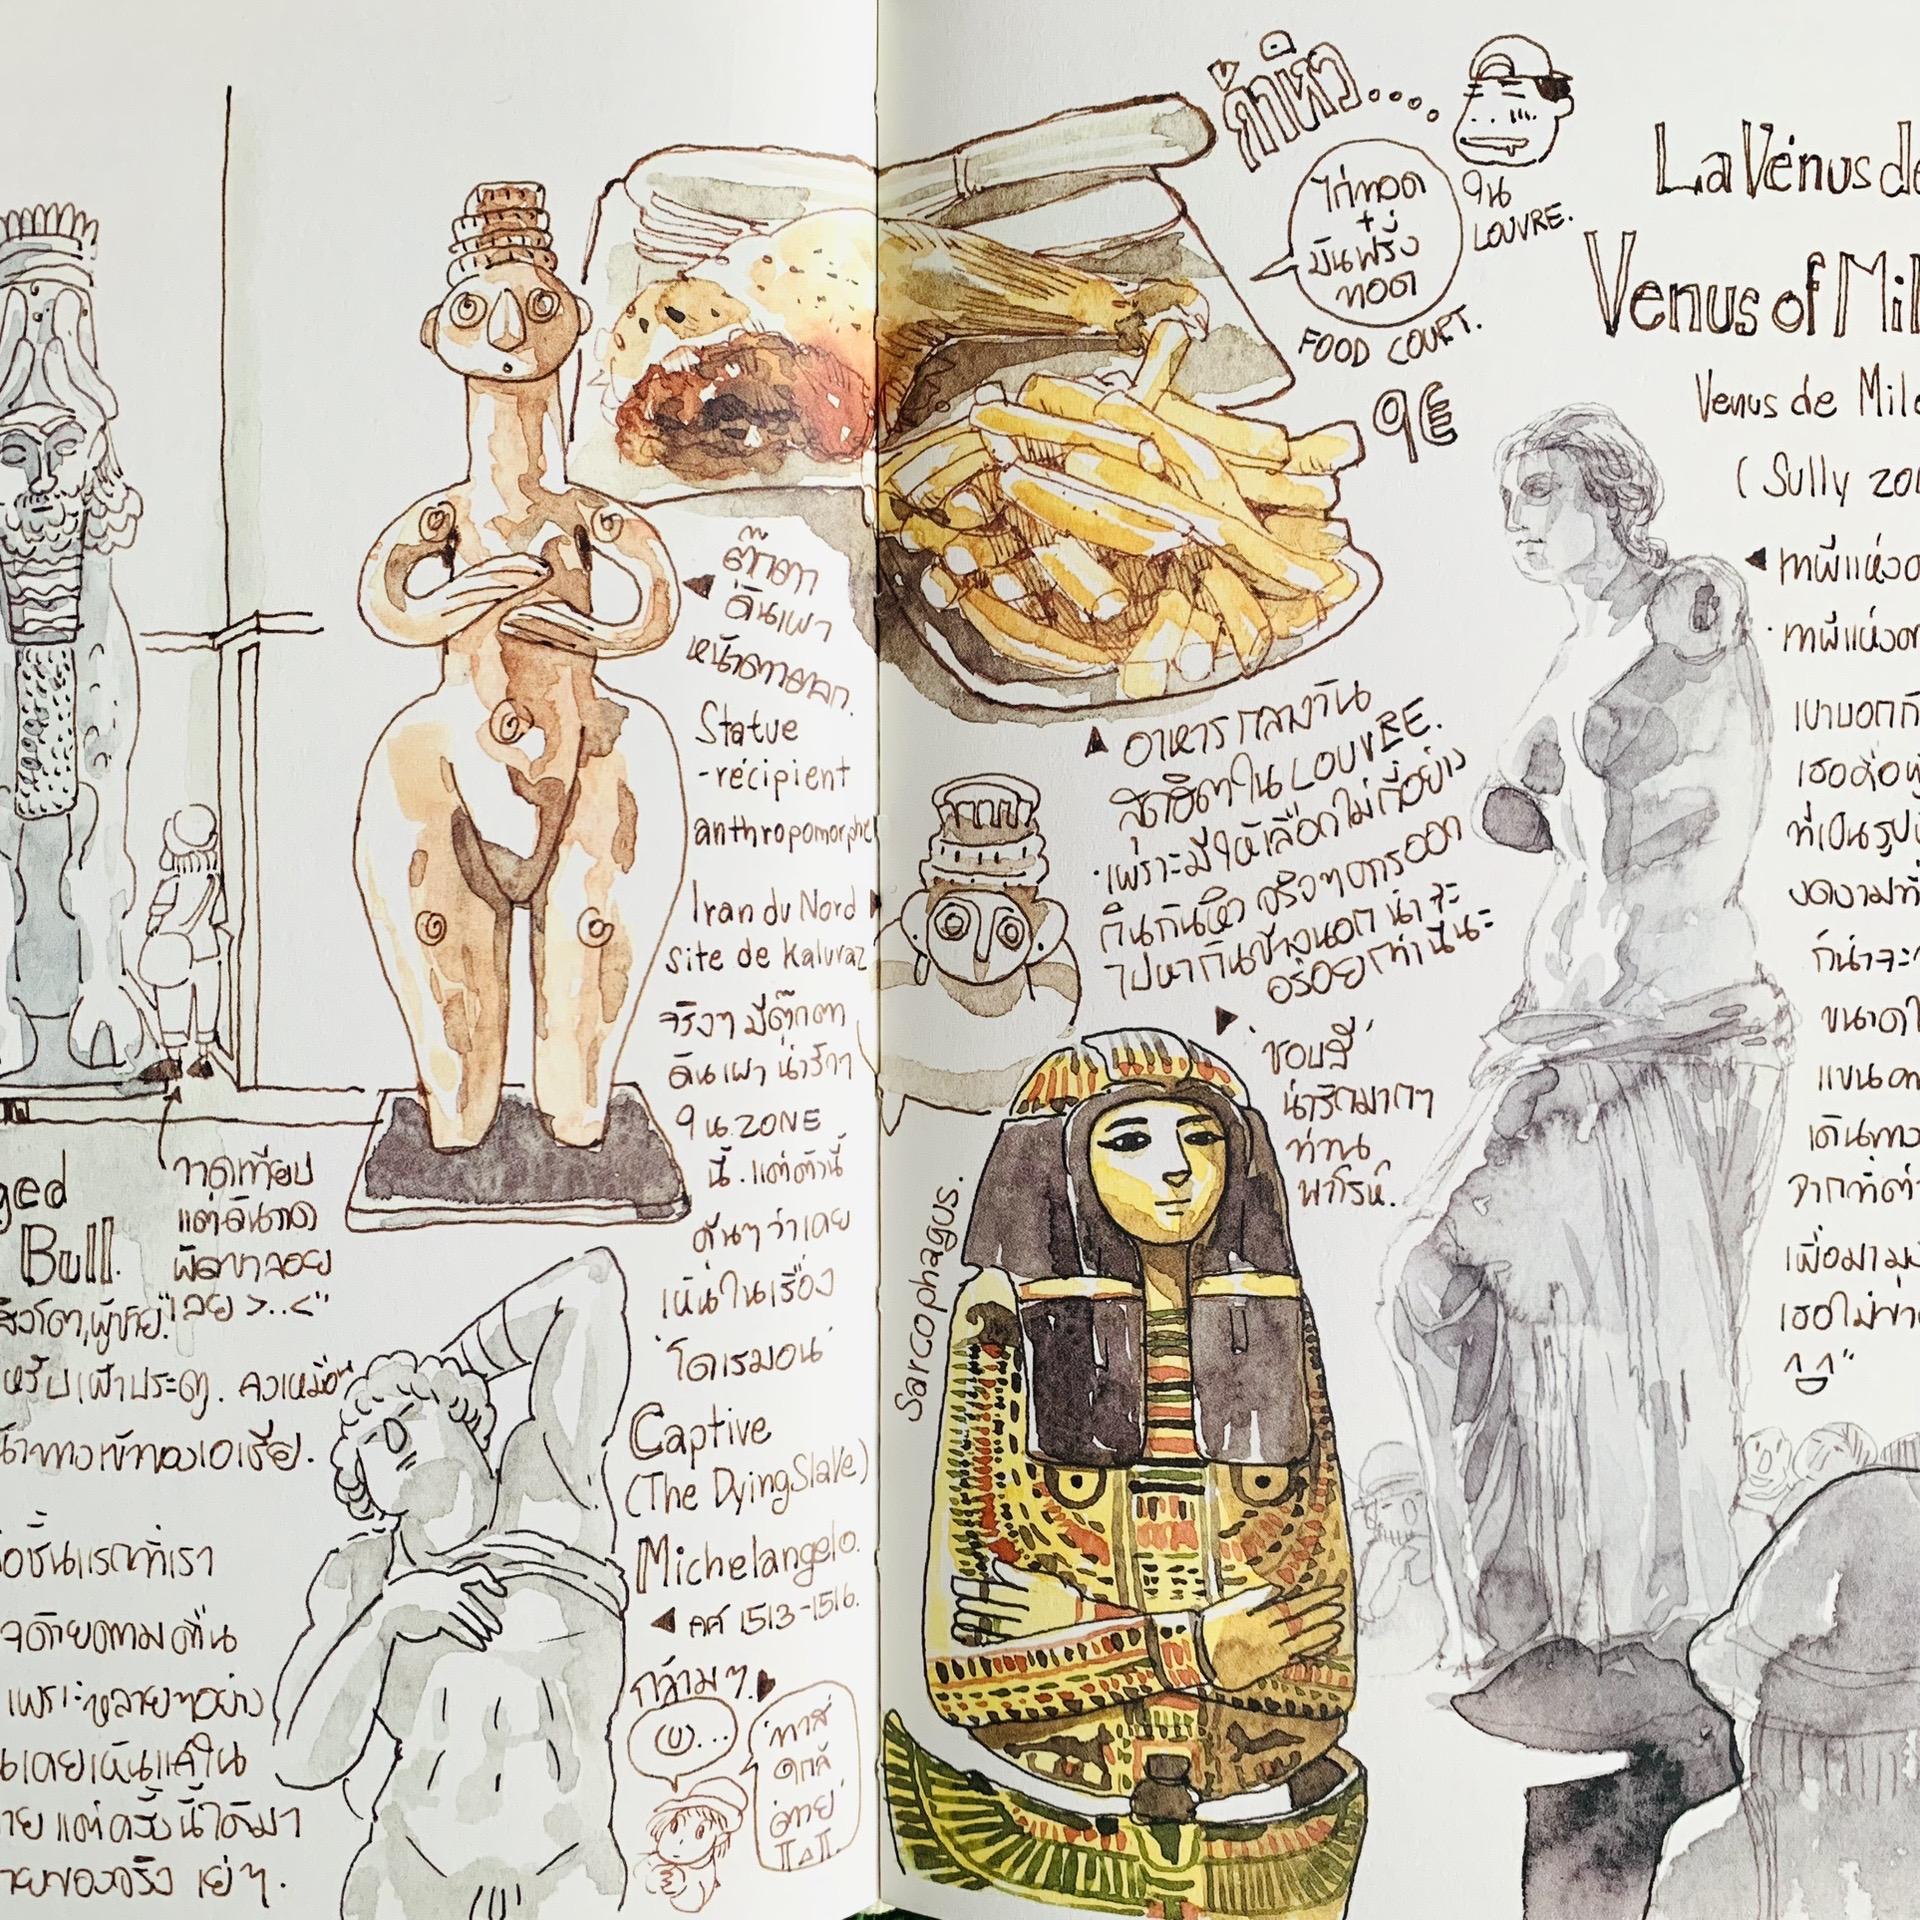 ged
Bull.
ทาดเทียบ
แต่ดันวาด
ผิดขาลอย
เลย >..<"
สิงโต,ผู้ชาย."
หรับเฝ้าประตู. คงเหมือน
ทางเข้าของเอเชีย.
ชั้นแรกที่เรา
เพราะหลายๆอย่าง
นเคยเห็นแค่ใน
แต่ครั้งนี้ได้มา
ของจริง เย่ๆ.
ตุ๊กตา
ดินเผา
หน้าตาตลก.
Statue
-récipient
anthropomorphe
Iran du Nord
site de Kaluraz
จริงๆ มีตุ๊กตา
ดินเผา น่ารักๆ
ใน ZONE
นี้. แต่ตัวนี้
คุ้นๆ ว่าเคย
เห็นในเรื่อง
'โดเรมอน'
Captive
(The Dying Slave)
Michelangelo.
คศ 1513-1516.
กล้ามๆ.
ทาส
ใกล้
ตาย
ถ้าหิว....
ใน
LOUVRE.
ไก่ทอด
+
มันฝรั่ง
ทอด
FOOD COURT.
9€
อาหารกลางวัน
สุดฮิตใน LOUVRE.
เพราะมีให้เลือกไม่กี่อย่าง
ไปหากินข้างนอก น่าจะ
อร่อยกว่านี้นะ
'ชอบสี'
น่ารักมากๆ
ท่าน
ฟาโรห์.
Sarcophagus.
La Vénus de
Venus of Mil
Venus de Milo
(Sully
เทพีแห่งค
เทพีแห่งคว
เขาบอกกั
เธอคือผู้
ที่เป็นรูป
งดงามที่
ก็น่าจะ
ขนาดไ
แขนก
เดินทาง
จากที่ต่า
เพื่อมามุ
เธอไม่ขา